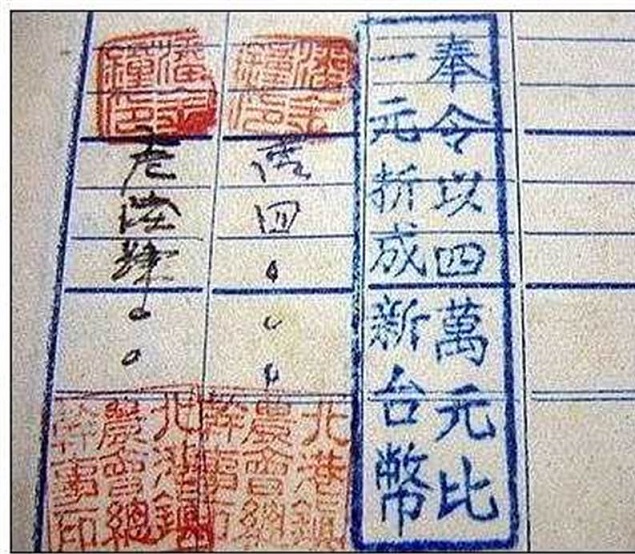 奉令以四萬元比
一元折成新台幣
四
北港鎮
農會總
幹事印
陸肆
北港鎮
農會總
幹事印